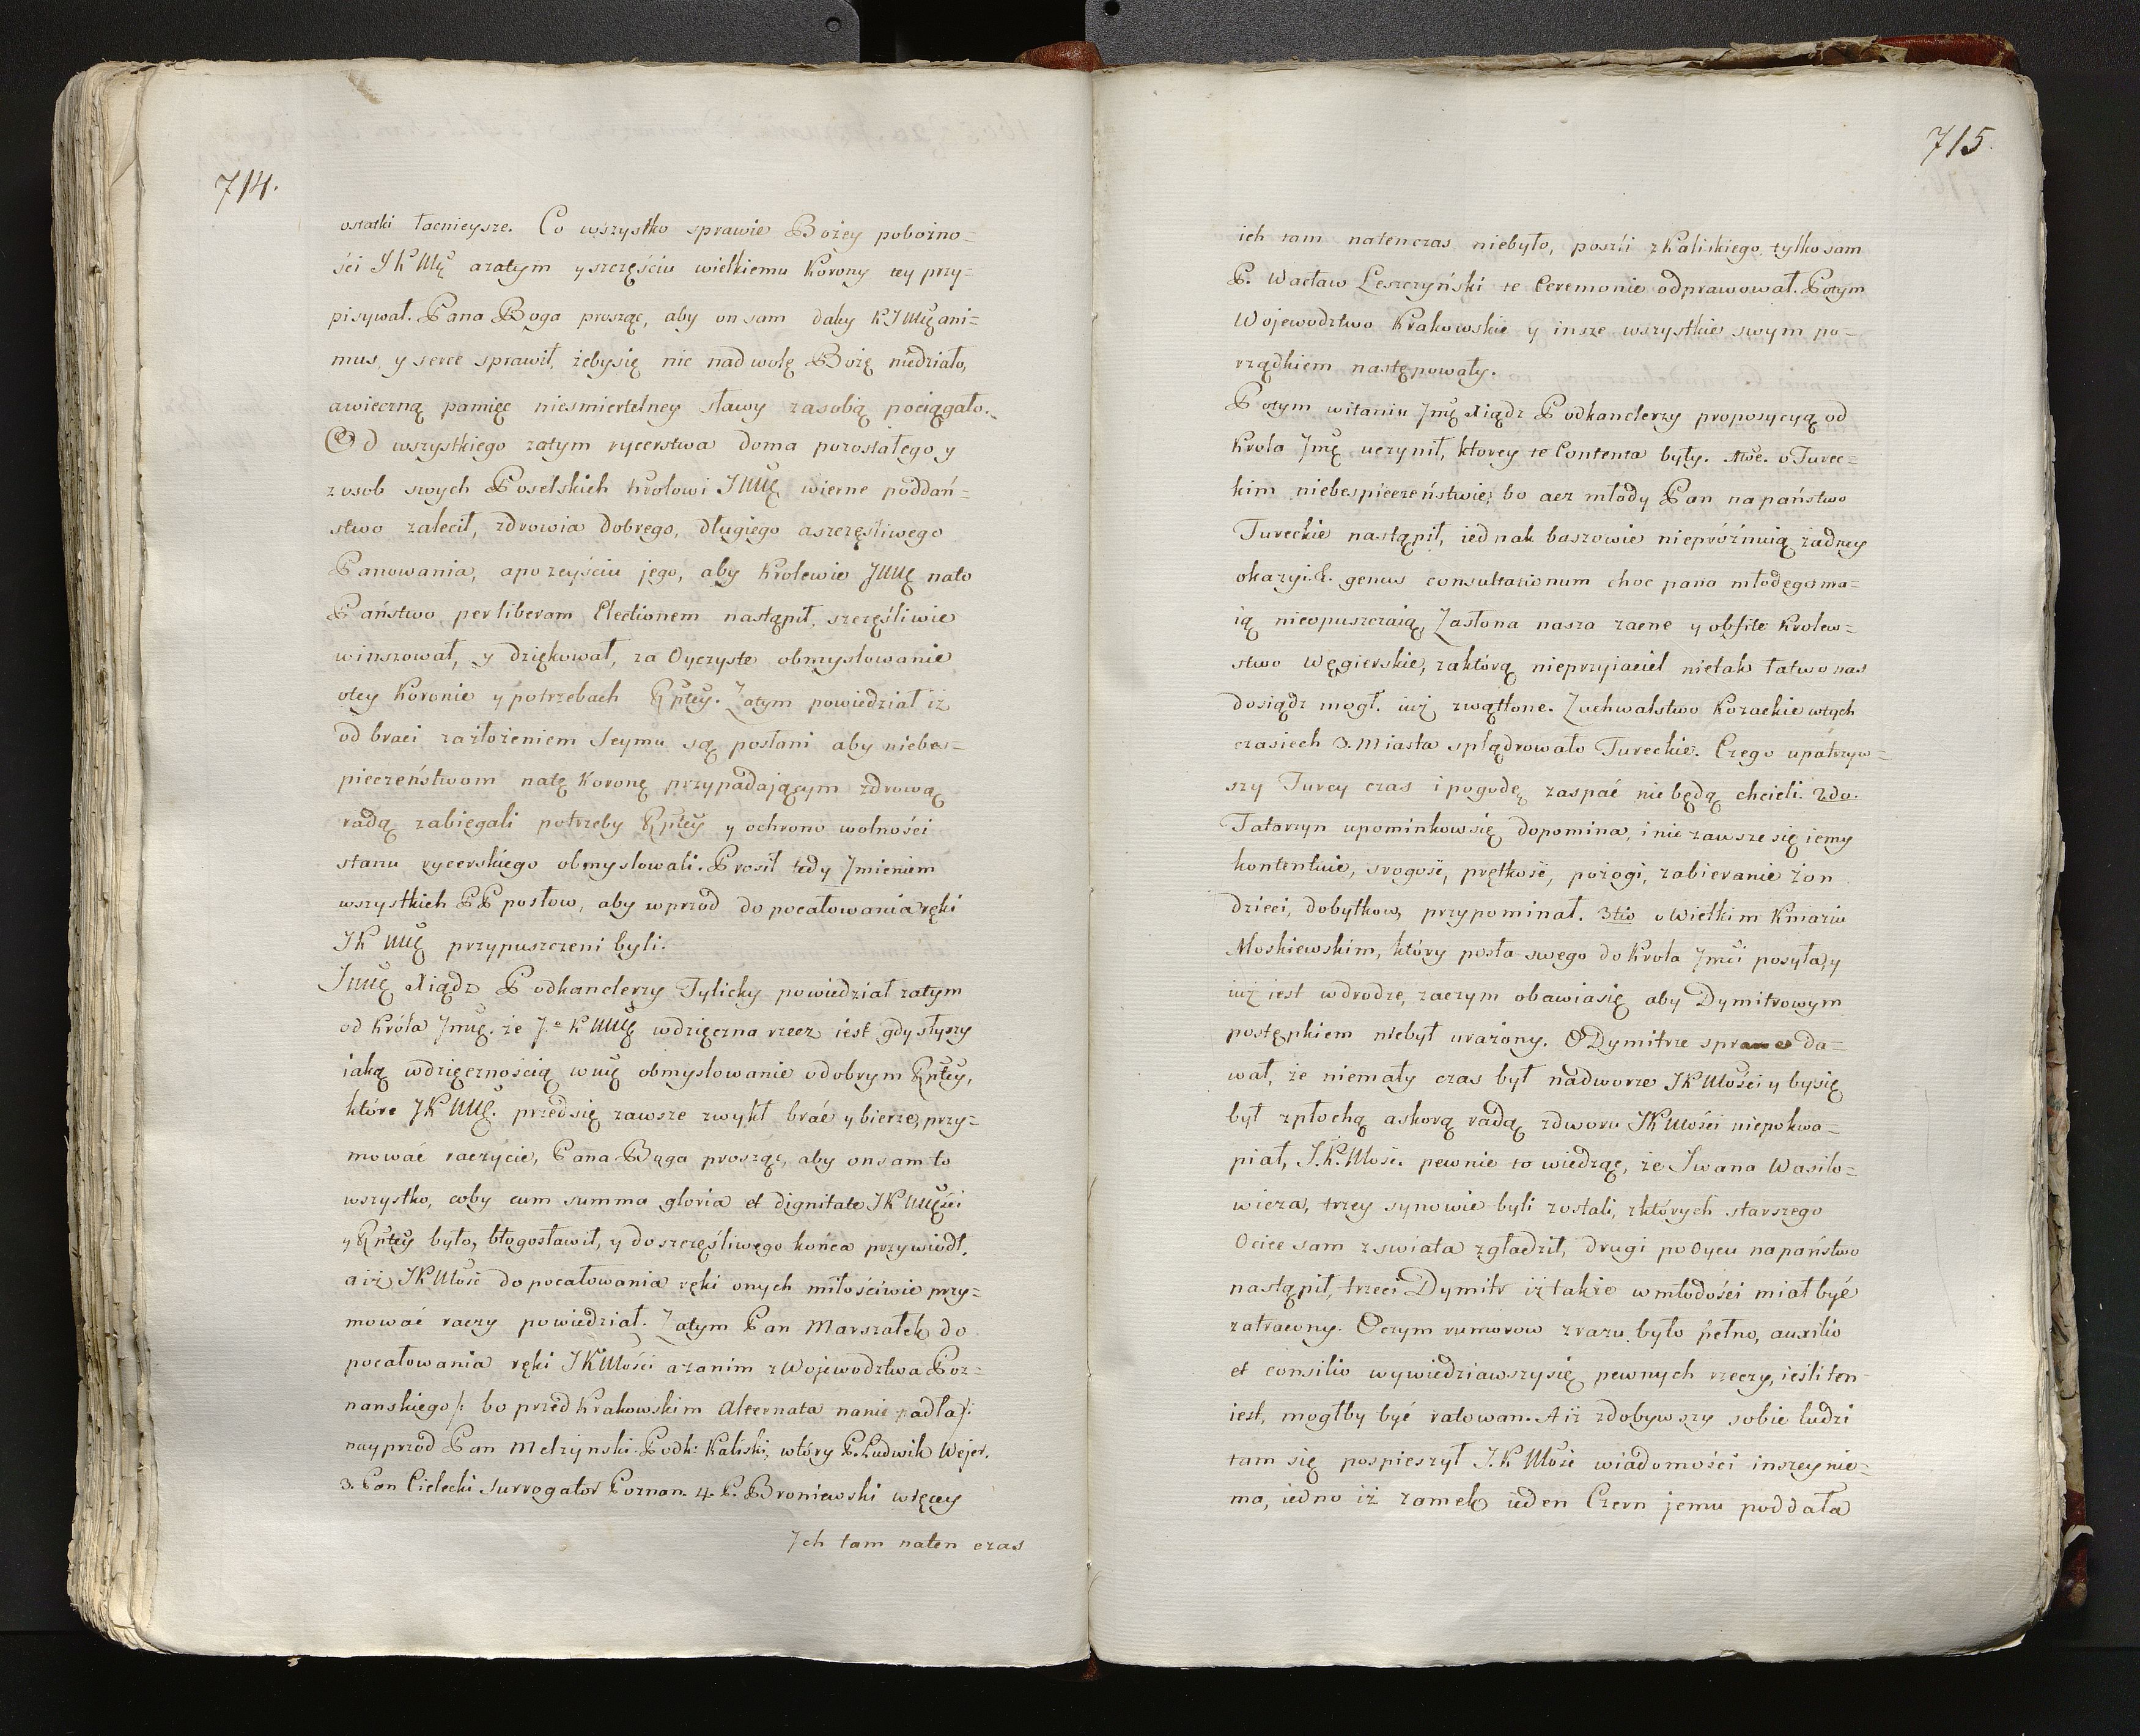 714.
ostatki łacnieysze. Co wszystko sprawie Bożey pobożno=
ści JKMę azatym y szczęściu wielkiemu Korony tey przy=
pisywał. Pana Boga prosząc, aby on sam dały KJMę ani=
mus, y serce sprawił, żebysię nic nad wolę Bożę niedziało,
a wieczną pamięc niesmiertelney sławy zasobią pociągało.
Od wszystkiego zatym rycerstwa doma pozostałego y
z osob swych Poselskich Krolowi JMę wierne poddań=
stwo zalecił, zdrowia dobrego, długiego a szczęsliwego
Panowania, apozeyściu jego, aby Krolewic JMę nato
Państwo per liberam Electionem nastąpił, szczęśliwie
winszował, y dziękował, za Oyczyste obmyslowanie
otey Koronie y potrzebach Rpltey. Zatym powiedział iż
od braci załozeniem Seymu są posłani aby niebes=
pieczeństwom natę Koronę przypadającym zdrową
radą zabiegali potrzeby Rpltey y ochrono wolności
stanu rycerskiego obmyslowali. Prosił tedy Jmieniem
wszystkich PP posłow, aby wprzod do pocałowania ręki
JKMę przypuszczeni byli.
JMę Xiądz Podkanclerzy Tylicky powiedział zatym
od Króla Jmę. że J.º KMę wdzięczna rzecz iest gdy słyszy
iaką wdzięcznością wmę obmyslowanie o dobrym Rpltey,
które JKMę. przedsię zawsze zwykł brać y bierze, przy=
mować raczycie, Pana Boga prosząc, aby on sam to
wszystko, coby cum summa gloria et dignitate JKMęści
y Rpltey było, błogosławił, y do szczęśliwego końca przywiodł.
a iż JKMość do pocałowania ręki onych miłościwie przy=
mować raczy powiedział. Zatym Pan Marszałek do
pocałowania ręki JKMości a zanim z Wojewodztwa Poz=
nanskiego /: bo przed Krakowskim Alternata nanie padła /:
nayprzód Pan Melzynski Podk: Kaliski, wtóry P. Ludwik Wejer.
3. Pan Cielecki Surrogator Poznan. 4. P. Broniewski więcey
Ich tam naten czas
715.
ich tam natenczas niebyło, poszli z Kaliskiego tylko sam
P. Wacław Leszczyński te Ceremonie odprawował. Potym
Wojewodztwo Krakowskie y insze wszystkie swym po=
rządkiem następowały.
Potym witaniu Jmę Xiądz Podkanclerzy proposycyą od
Krola Jmę uczynił, ktorey te Contenta były. o Turec=
kim niebespieczeństwie; bo acz młody Pan na państwo
Tureckie nastąpił, iednak baszowie niepróżnuią żadney
okazyi. genus consultationum choc pana młodego ma=
ią nieopuszczaią, Zasłona nasza zacne y obfite Krolew=
stwo Węgierskie, zaktórą nieprzyiaciel nietak łatwo nas
dosiądz mogł. iuż zwątlone. Zuchwalstwo Kozackie w tych
czasiech 3. Miasta splądrowało Tureckie. Czego upatrzyw=
szy Turcy czas i pogodę zaspać nie będą chcieli. 2do.
Tatarzyn upominkow się dopomina, i nie zawsze się iemy
kontentuie, srogość, prętkość, pożogi, zabieranie żon
dzieci, dobytkow, przypominał. 3tio o Wielkim Kniaziu
Moskiewskim, który posła swego do Krola Jmći posyła, y
iuż iest w drodze, zaczym obawia się aby Dymitrowym
postępkiem niebył urażony. O Dymitrze da=
wał, że niemały czas był nadworze JKMości y bysię
był zpłochą a skorą radą zdworu JKMości niepokwa=
piał, J.K.Mość. pewnie to wiedząc, że Jwana Wasilo=
wicza, trzey synowie byli zostali, z których starszego
Ociec sam z swiata zgładził, drugi po Oycu na państwo
nastąpił, trzeci Dymitr iż takie w młodości miał być
zatracony. O czym rumorow zrazu było pełno, auxilio
et consilio wywiedziawszysię pewnych rzeczy, iesli ten
iest, mogłby być ratowan. A iż zdobywszy sobie ludzi
tam się pospieszył J.K Mość wiadomości inszey nie=
ma, iedno iż zamek ieden Czern jemu poddała